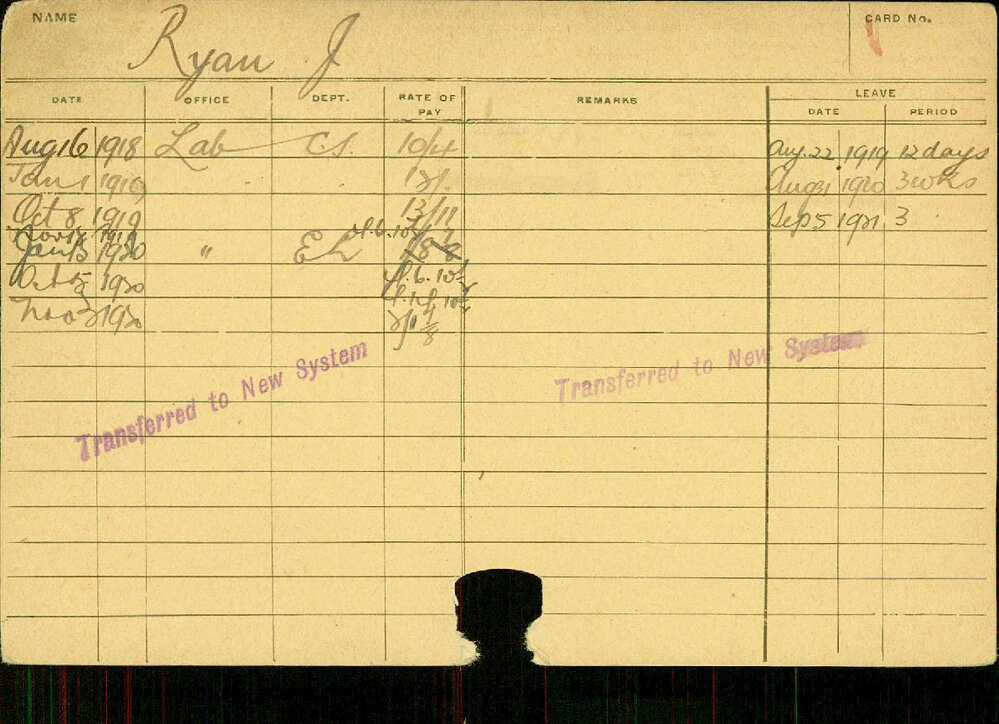 NAME Ryan J CARD No.
DATE OFFICE DEPT. RATE OF PAY REMARKS LEAVE
DATE PERIOD
Aug 16 1918 Lab CS. 10/4 Aug. 22 1919 12 days
Jan 1 1919 Aug 31 1920 3 wks
Oct 8 1919 13/11 Sep 5 1921 3
Nov 1919
Jan 13 1920 " EL
Oct 5 1920
Nov 3 1920
Transferred to New System
Transferred to New System